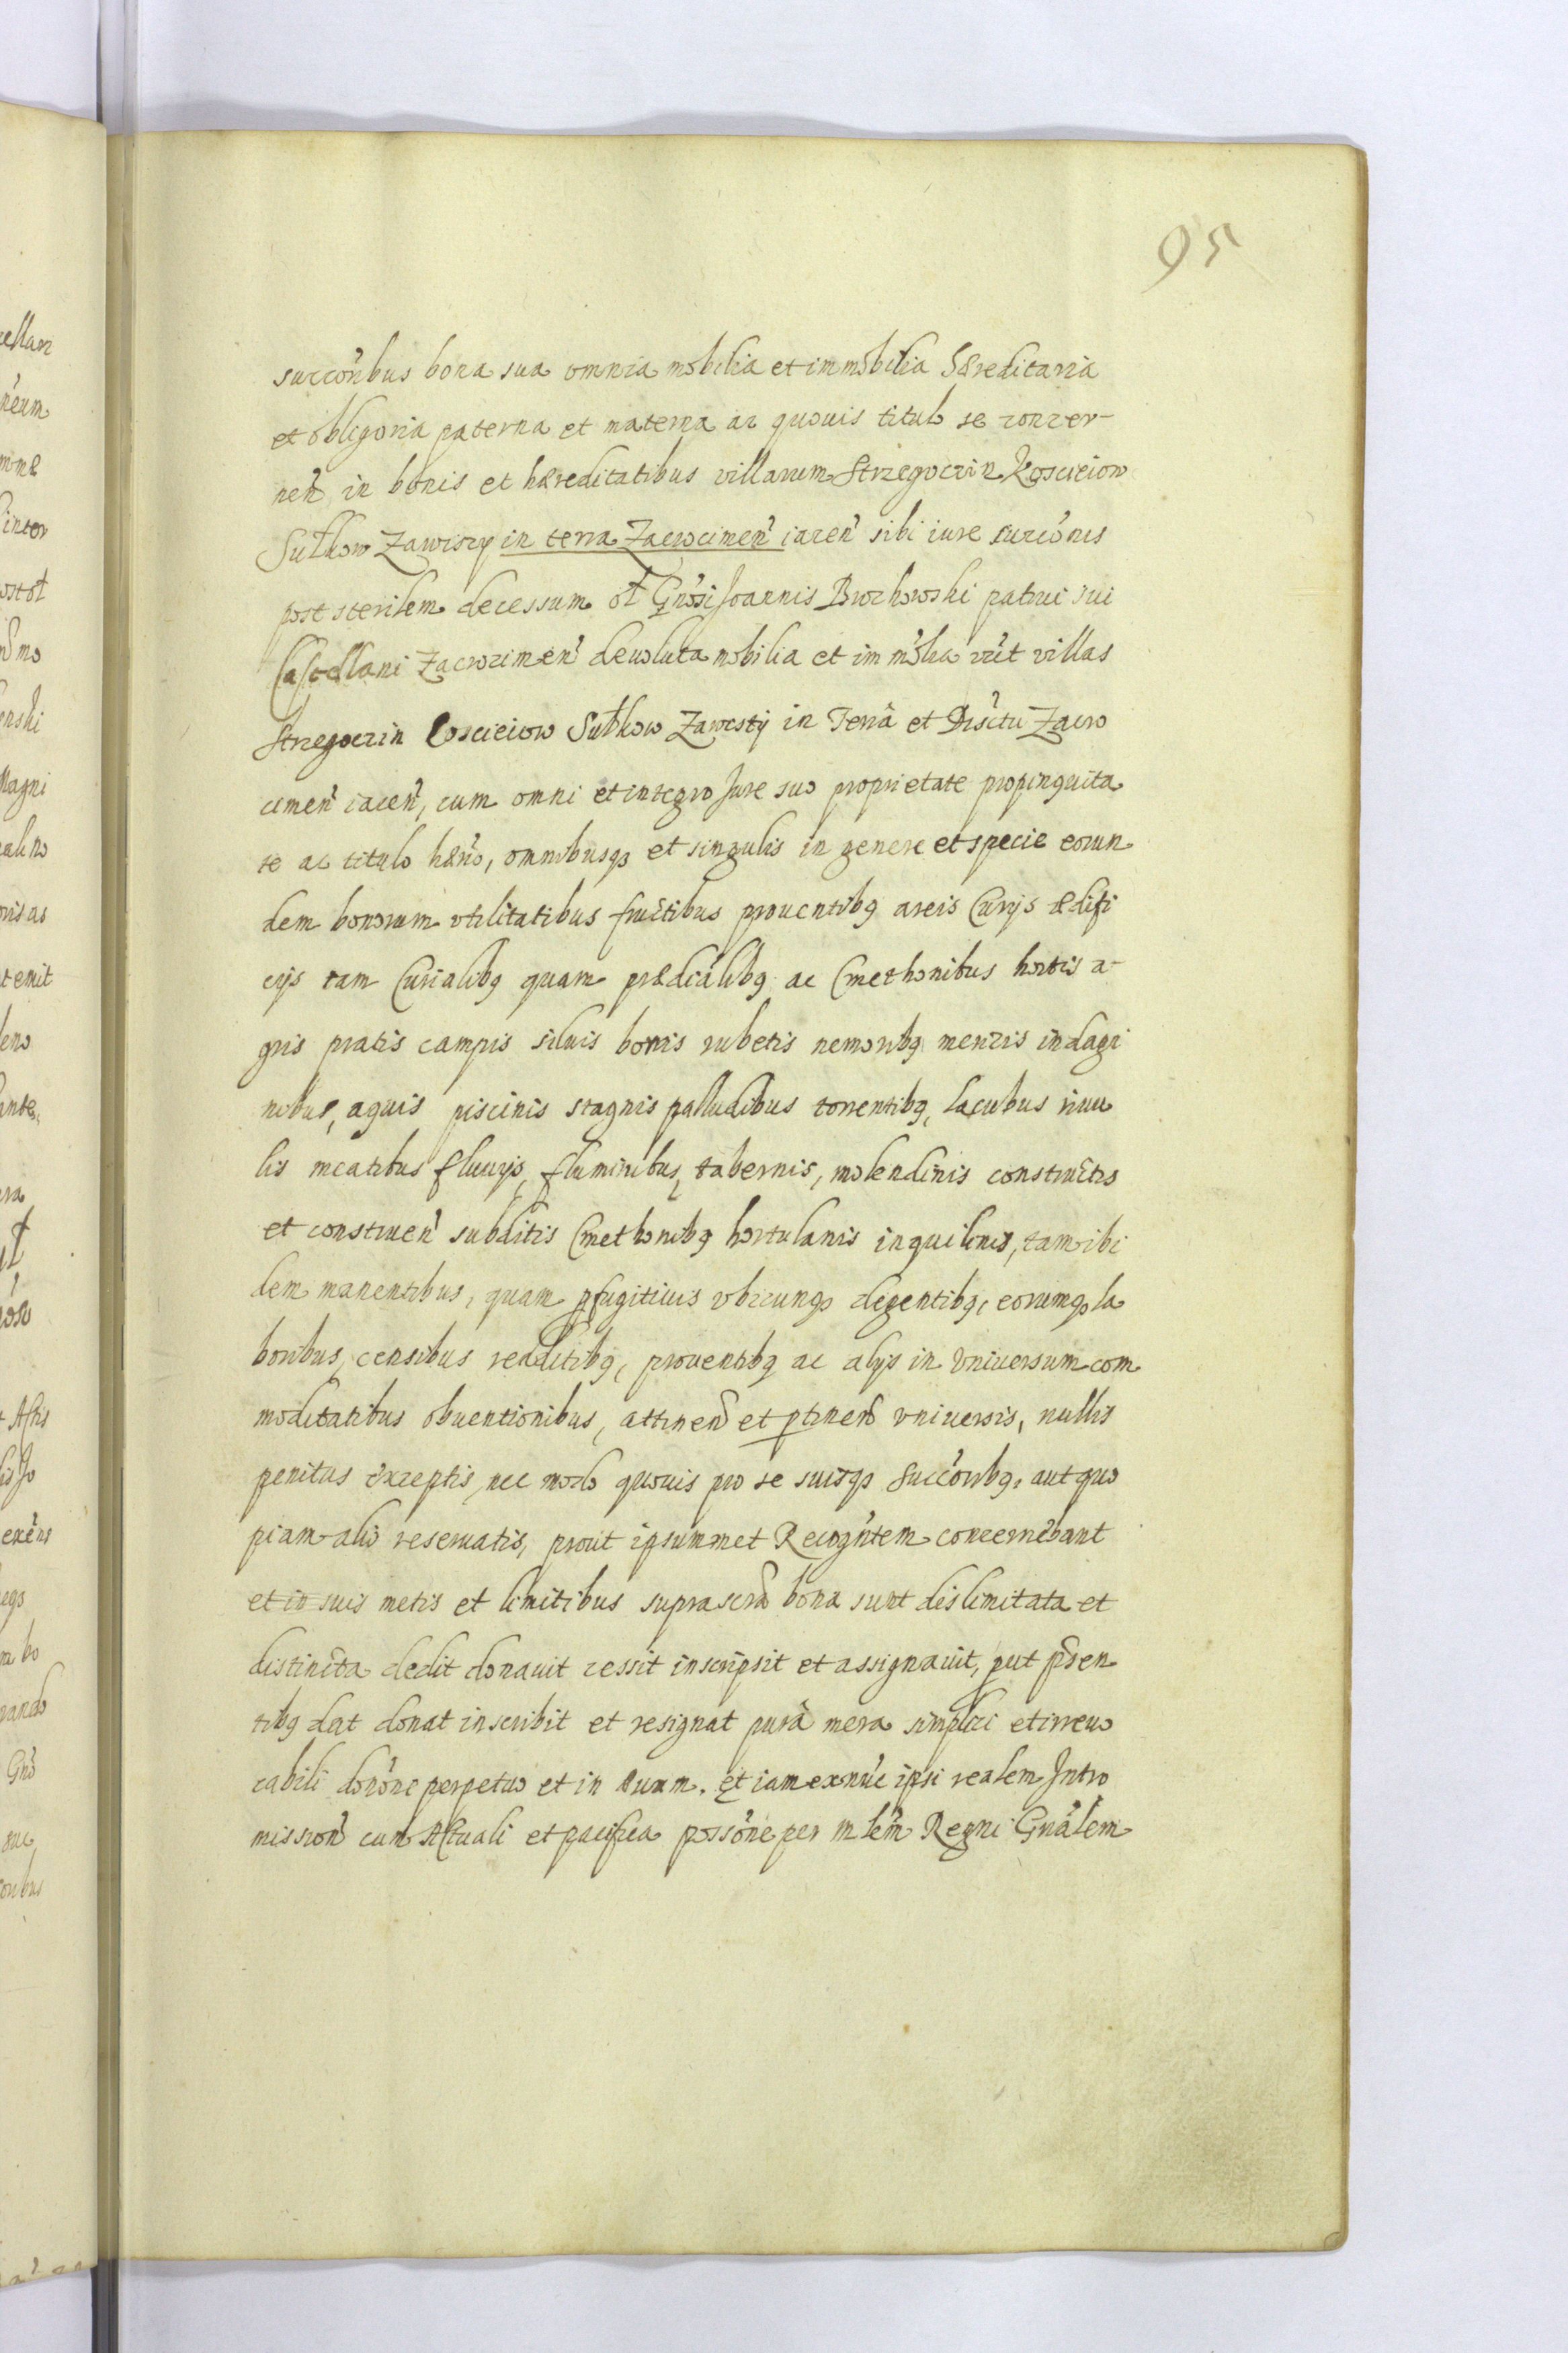 95
succõribus bona sua omnia mobilia et immobilia hæreditaria
et obligoria paterna et materna ac quouis titulo se concer-
neñ in bonis et hæreditatibus villarum Strzegoczin Koscieiow
Sutkow Zawiszy in terra Zacrocimeñ iaceñ sibi iure succõnis
post sterilem decessum ol Gnõsi Joannis Brochowski patrui sui
Castellani Zacrocimeñ deuoluta mobilia et immõlia vĩt villas
Strzegoczin Coscieiow Sutkow Zawisty in Terra et Disctu Zacro
cimeñ iaceñ, cum omni et integro Jure suo proprietate propinquita
te ac titulo hærio, omnibusq3 et singulis in genere et specie eorun
dem bonorum vtilitatibus fructibus prouentibq areis Curijs ædifi
cijs tam Curialibq quam prædialibq ac Cmethonibus hortis a-
gris pratis campis siluis borris rubetis nemoribq mericis indagi
nibus, aquis piscinis stagnis palludibus torrentibq, lacubus riuu
lis meatibus fluuijs, fluminibus, tabernis, molendinis constructis
et construeñ subditis Cmethonibq hortulanis inquilinis, tam ibi
dem manentibus, quam pfugitiuis vbicunq3 degentibq, eorumq3 la
boribus, censibus redditibq, prouentibq ac alijs in vniuersum com
moditatibus obuentionibus, attineñ et ptineñ vniuersis, nullis
penitus exceptis, nec modo quouis pro se suisq3 succõribq, aut quo
piam alio reseruatis, prout ipsummet Recogñtem concernebant
et in suis metis et limitibus suprascrã bona sunt dislimitata et
distincta dedit donauit cessit inscripsit et assignauit, put pñsen
tibq dat donat inscribit et resignat pura mera simplici et irreuo
cabili donõne perpetuo et in æuum. Et iam ex nũc ipsi realem Intro
missioñ cum Actuali et pacifica possõne per mlẽm Regni Gnãlem